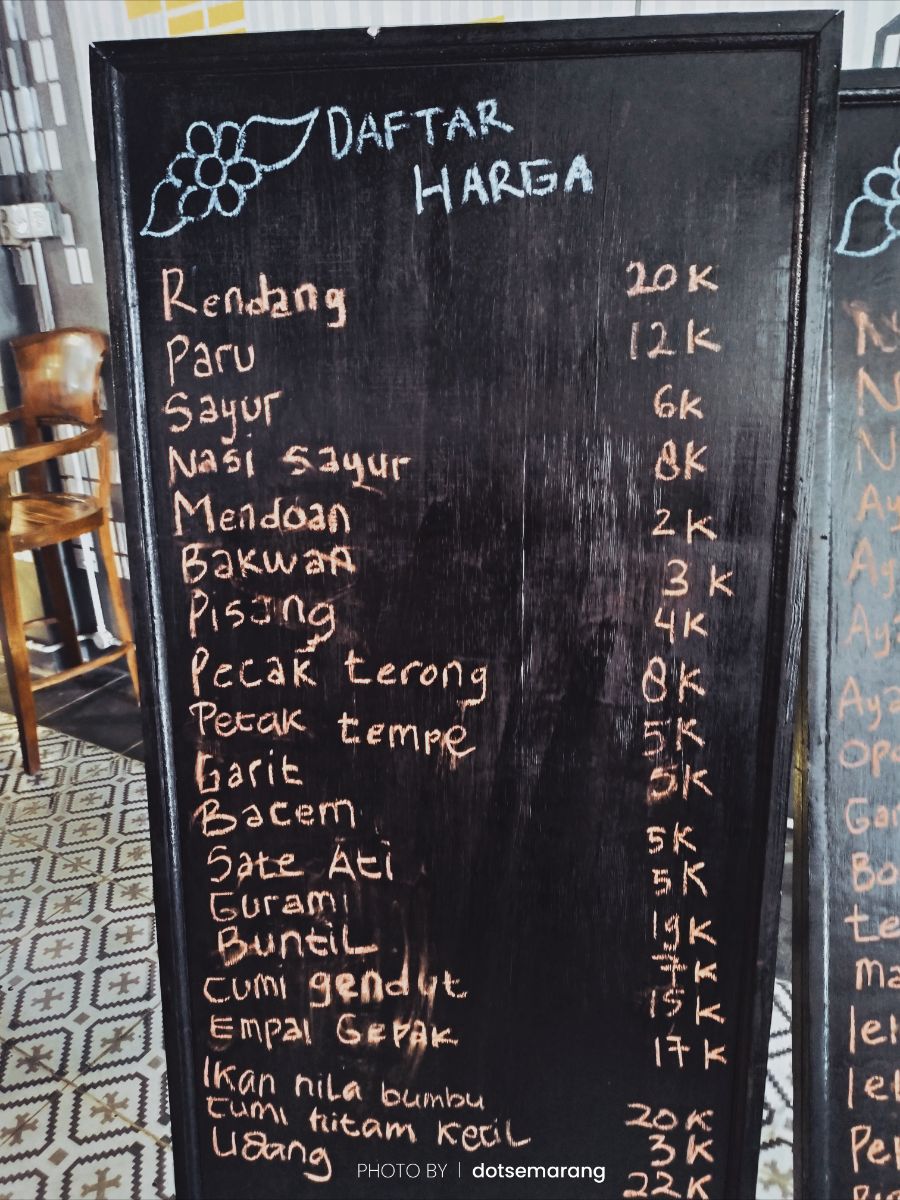 DAFTAR
HARGA
Rendang 20K
Paru 12K
Sayur 6K
Nasi Sayur 8K
Mendoan 2K
Bakwan 3K
Pisang 4K
Pecak terong 8K
Pecak tempe 5K
Garit 5K
Bacem 5K
Sate Ati 5K
Gurami 19K
Buntil 7K
Cumi gendut 15K
Empal Gepak 17K
Ikan nila bumbu 20K
Cumi hitam Kecil 3K
Udang 22K
PHOTO BY | dotsemarang